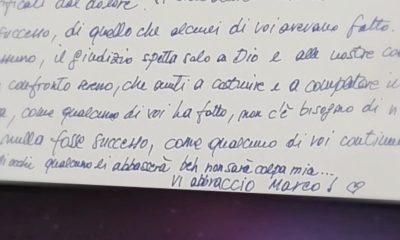 ficati dal dolore. Vi
successo, di quello che alcuni di voi avevano fatto.
suno, il giudizio spetta solo a Dio e alle nostre co
confronto sereno, che aiuti a costruire e a completare i
a, come qualcuno di voi ha fatto, non c'è bisogno di n
nulla fosse successo, come qualcuno di voi continu
di occhi qualcuno li abbasserà beh non sarà colpa mia...
Vi abbraccio Marco! ♡